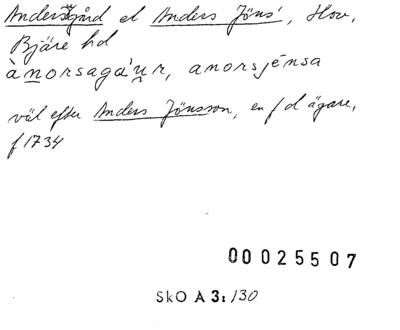 Andersgård el Anders Jöns', Hov,
Bjäre hd
ànorsagáu̯r, anorsjénsa
väl efter Anders Jönsson, en f d ägare,
f 1734
00025507
SkO A 3: 130